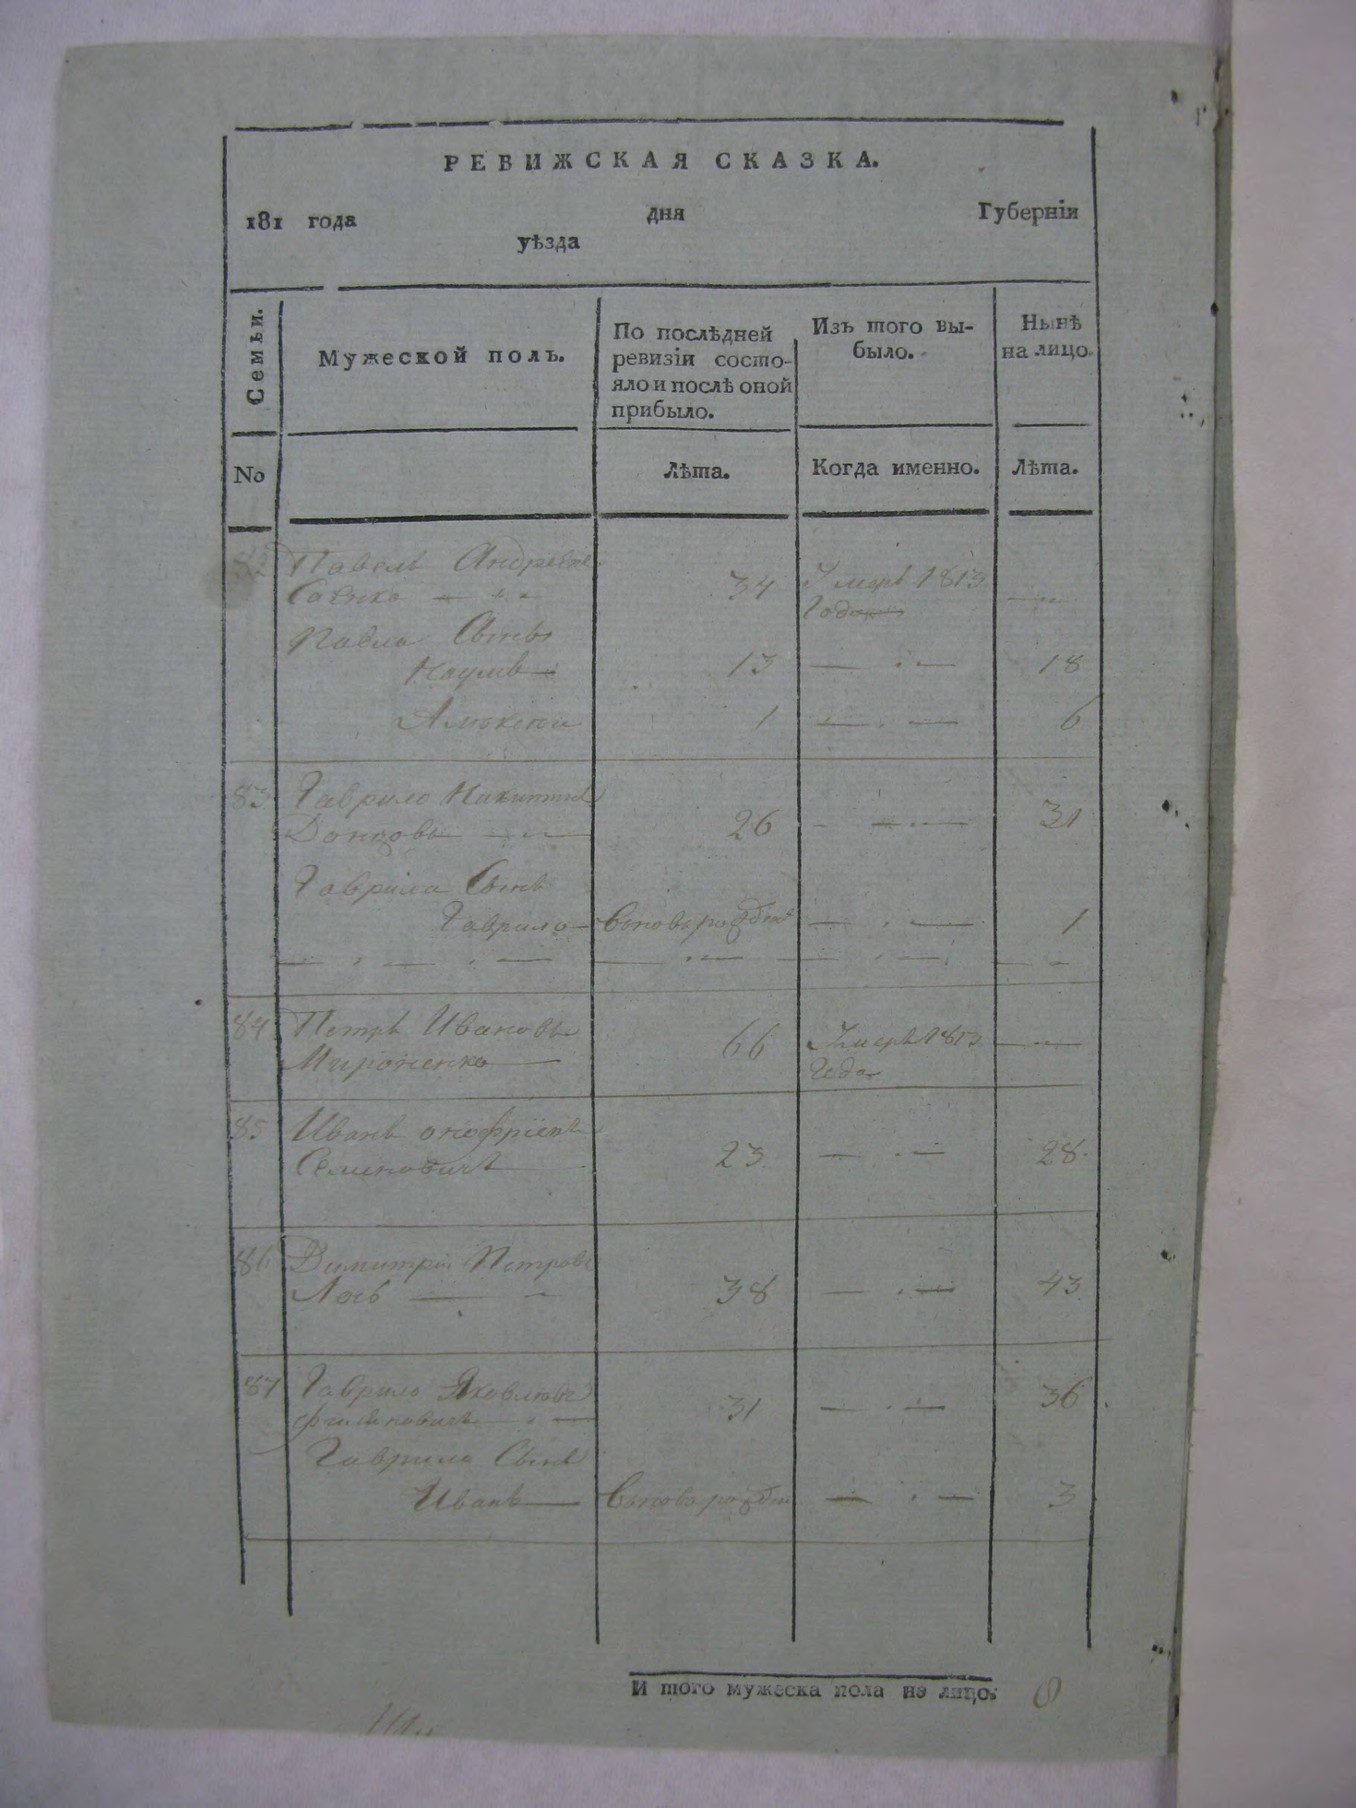 РЕВИЖСКАЯ СКАЗКА.
181 года дня Губерніи
уѣзда
Семьи.
Мужеской полъ.
По послѣдней ревизіи состо-яло и послѣ оной прибыло.
Изъ того вы-было.
Нынѣ на лицо.
No
Лѣта.
Когда именно.
Лѣта.
82 Павелъ Андреевъ
34 Умеръ 1813
Года
Павла Сынъ
Наумъ 13 18
Алюксей 1 6
83 Гаврило Никитинъ
Донцовъ 26 31
Гаврила Сынъ
Гаврило Вновьрожден 1
84 Петръ Ивановъ
Мироненко 66 Умеръ 1813
Года
85 Иванъ Онофріевъ
Семеновичъ 23 28
86 Димитрій Петровъ
Лось 38 43
87 Гаврило Яковлювъ
31 36
Гаврило Сынъ
Иванъ Вновьрожден 3
И того мужеска пола на лицо. 8